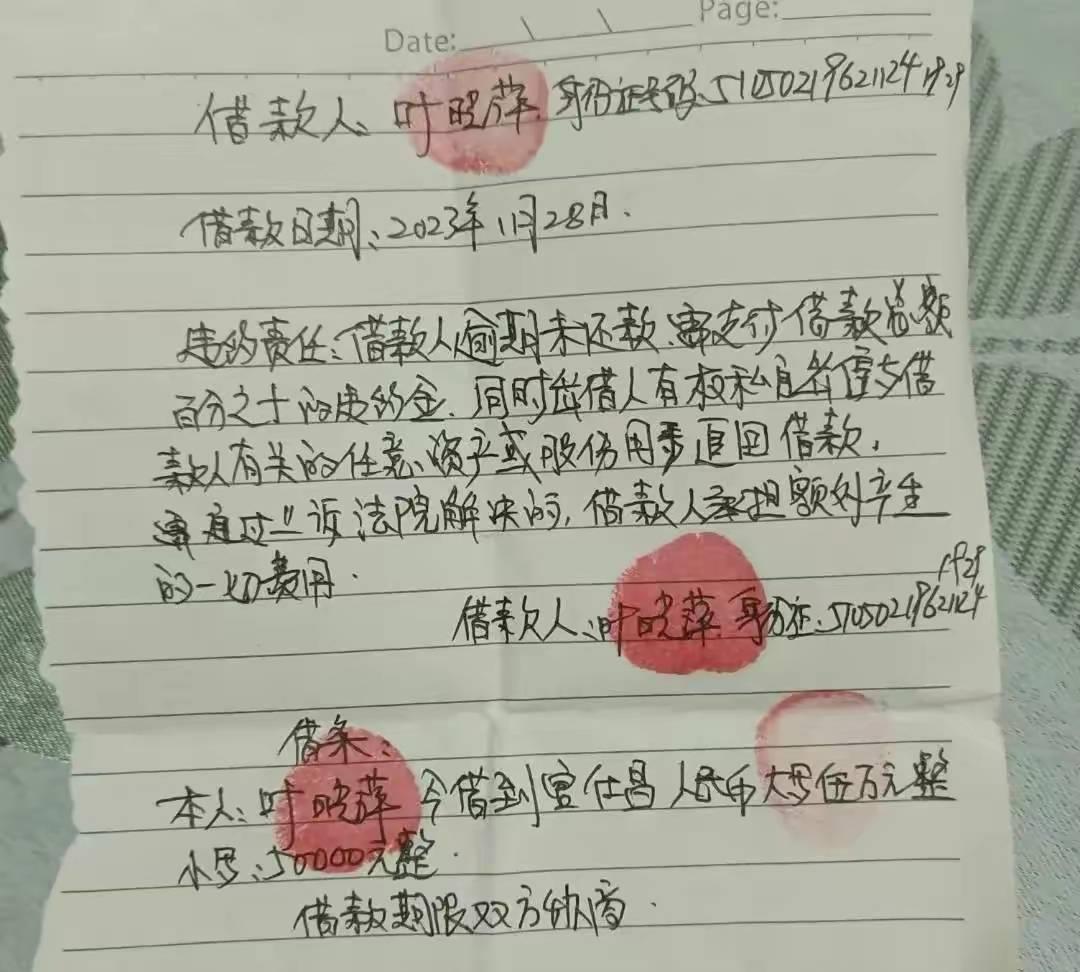 Date: Page:
借款人:叶晓萍.身份证号码:510502196211241929
借款日期:2023年11月28日.
违约责任:借款人逾期未还款.需支付借款总额
百分之十的违约金.同时出借人有权私自处置与借
款人有关的任意资产或股份用于追回借款,
需通过上诉法院解决的,借款人承担额外产生
的一切费用.
1929
借款人:叶晓萍.身份证:51050219621124
借条:
本人:叶晓萍今借到 仕昌人民币大写伍万元整
小写:50000元整.
借款期限双方协商.